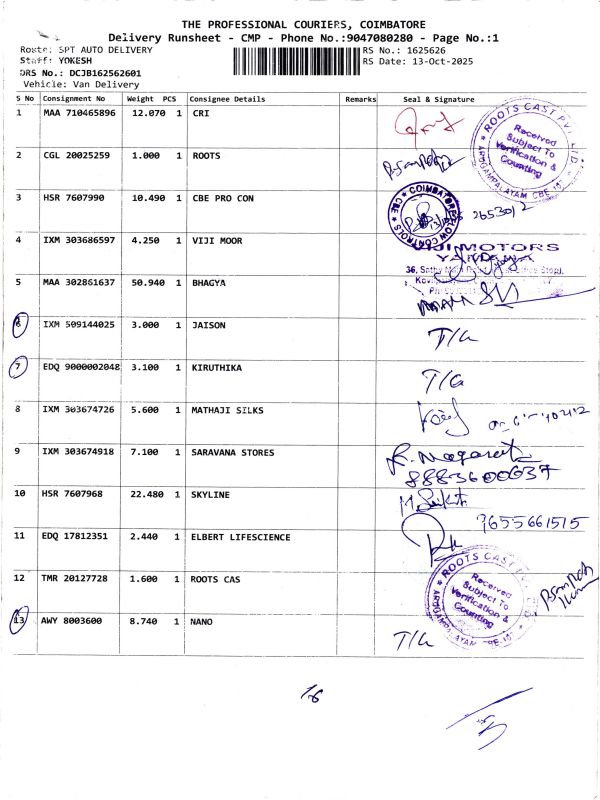 THE PROFESSIONAL COURIERS, COIMBATORE
Delivery Runsheet - CMP - Phone No.:9047080280 - Page No.:1
Route: SPT AUTO DELIVERY
RS No.: 1625626
Staff: YOKESH
RS Date: 13-Oct-2025
DRS No.: DCJB162562601
Vehicle: Van Delivery
S No Consignment No Weight PCS Consignee Details Remarks Seal & Signature
1 MAA 710465896 12.070 1 CRI
2 CGL 20025259 1.000 1 ROOTS
3 HSR 7607990 10.490 1 CBE PRO CON
4 IXM 303686597 4.250 1 VIJI MOOR
5 MAA 302861637 50.940 1 BHAGYA
6 IXM 509144025 3.000 1 JAISON T/G
7 EDQ 9000002048 3.100 1 KIRUTHIKA T/G
8 IXM 303674726 5.600 1 MATHAJI SILKS
9 IXM 303674918 7.100 1 SARAVANA STORES
8883600637
10 HSR 7607968 22.480 1 SKYLINE
9655661515
11 EDQ 17812351 2.440 1 ELBERT LIFESCIENCE
12 TMR 20127728 1.600 1 ROOTS CAS
13 AWY 8003600 8.740 1 NANO T/G
ROOTS CAST PVT LTD
Received
Subject To
Verification &
Counting
AROGAMPALAYAM CBE
COIMBATORE FLOW CONTROLS
CBE
VIJI MOTORS
ROOTS CAST PVT
Received
Subject To
Verification &
Counting